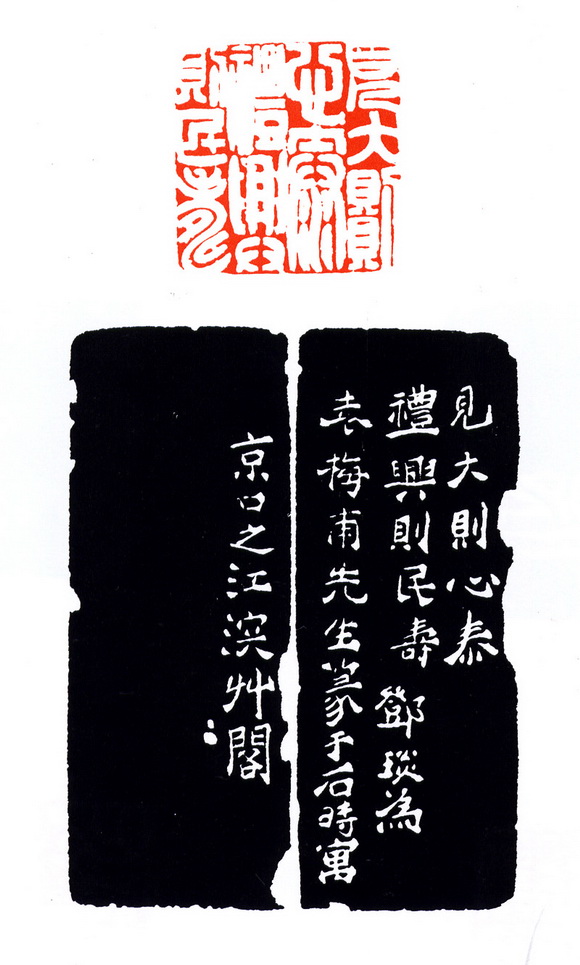 見大則
心泰
禮興
則民壽
見大則心泰
禮興則民壽 鄧琰為
袁梅甫先生篆于石時寓
京口之江濱艸閣